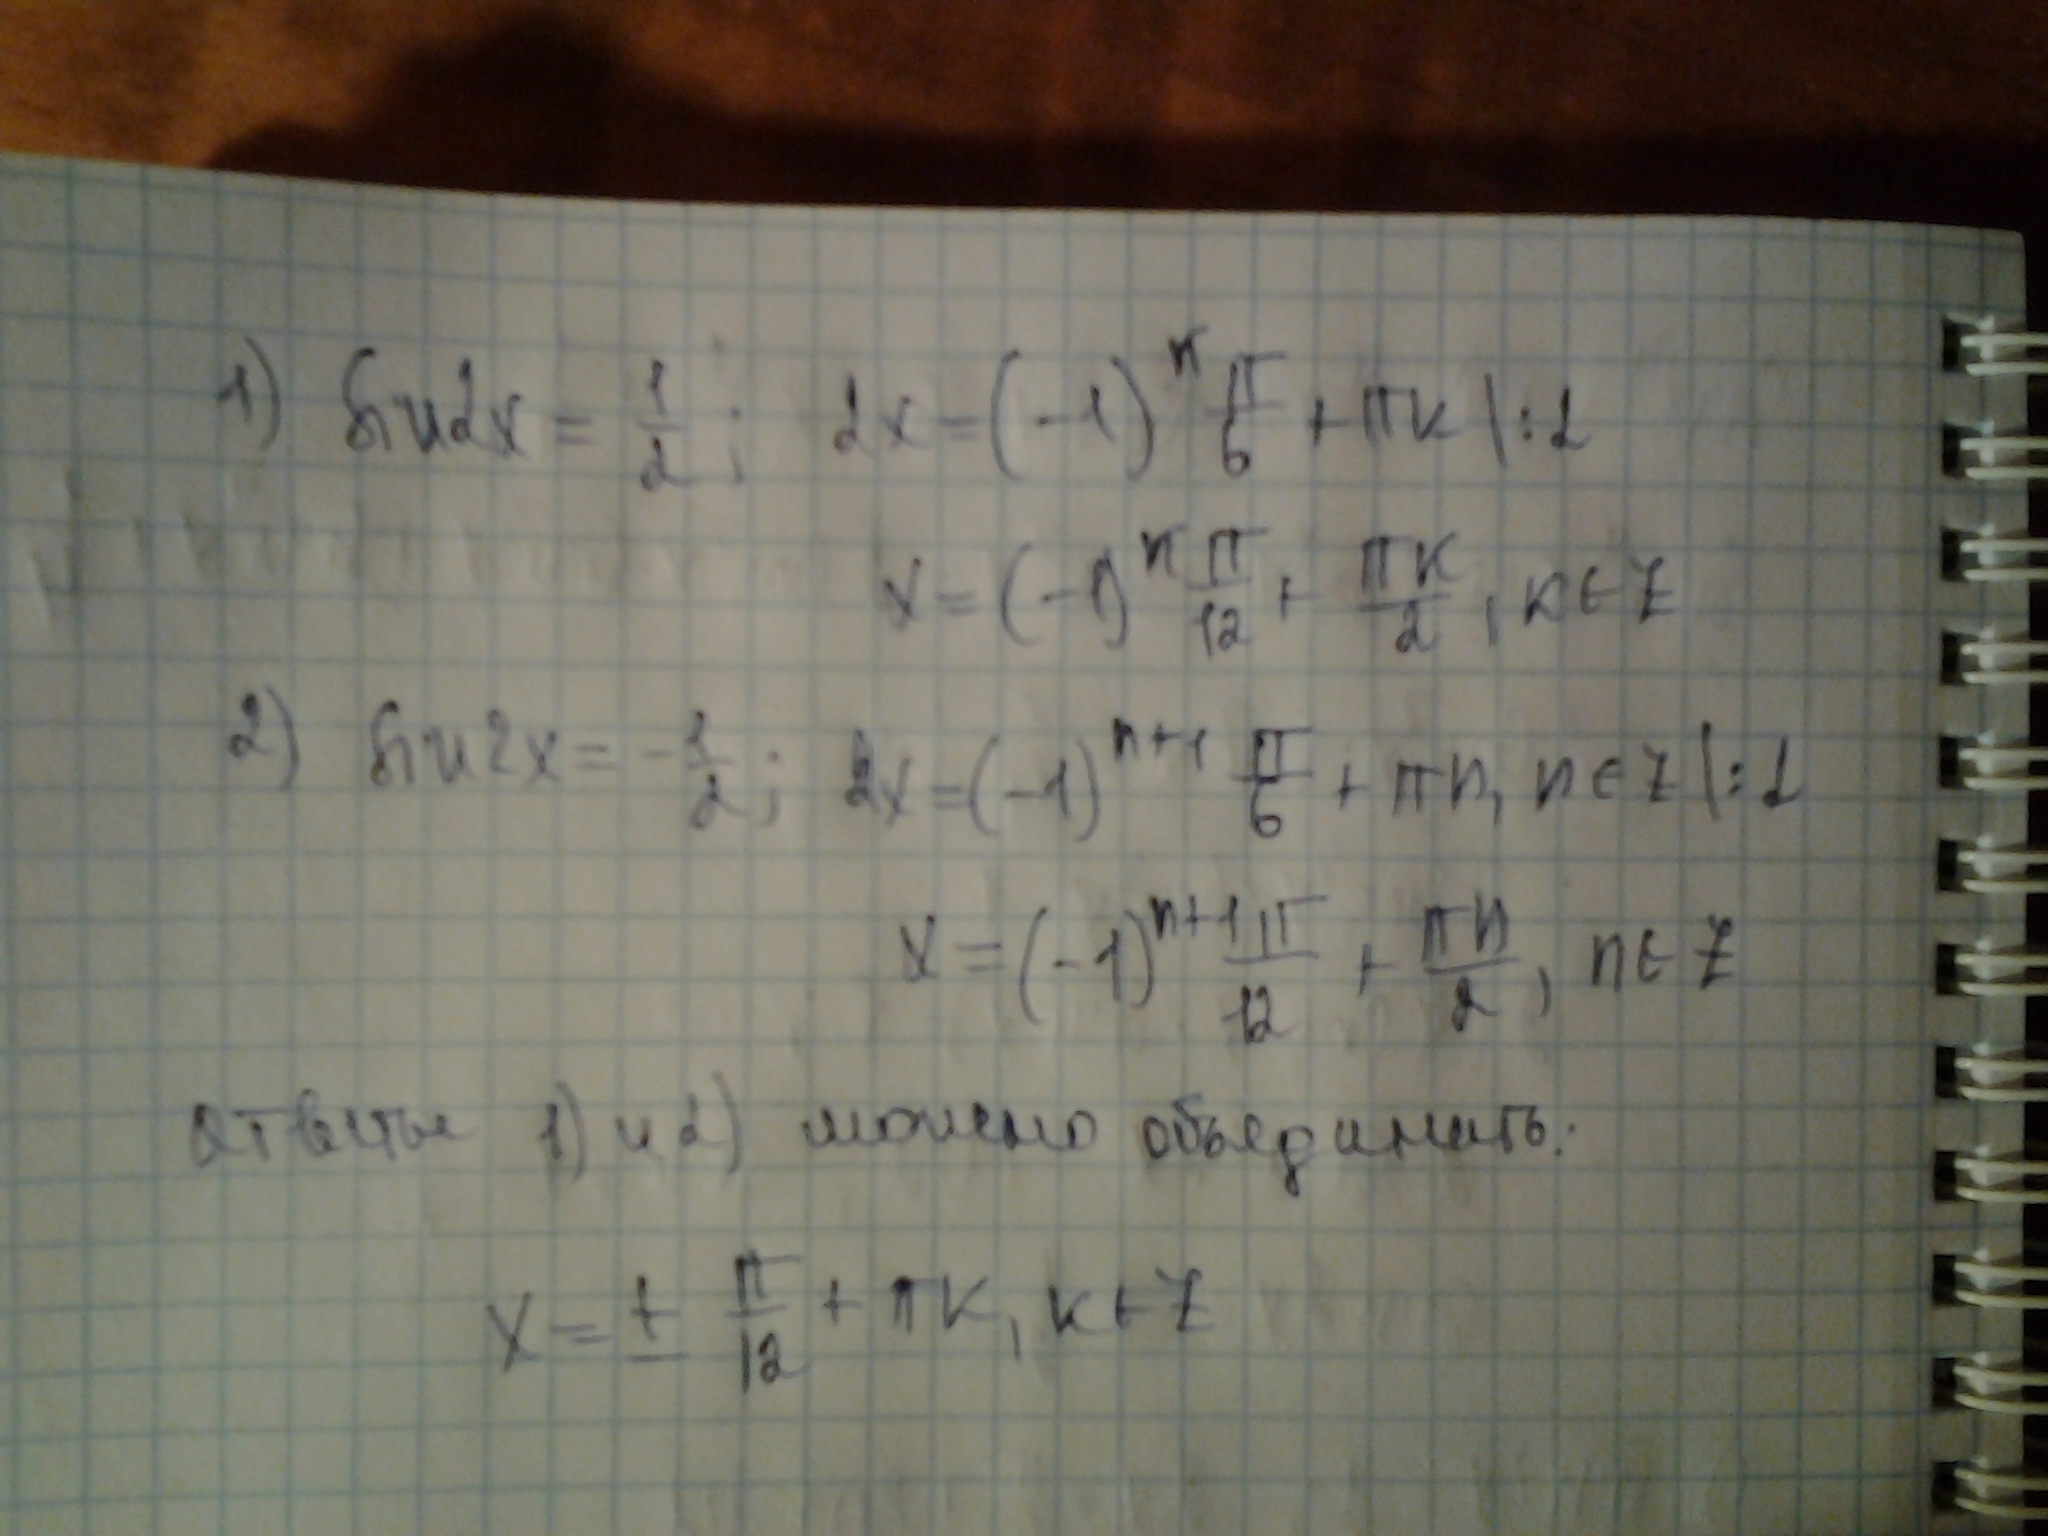 1) sin2x = 1/2; 2x = (-1)^к π/6 + πк |:2
x = (-1)^к π/12 + πк/2, к ∈ Z
2) sin2x = -1/2; 2x = (-1)^(n+1) π/6 + πn, n ∈ Z |:2
x = (-1)^(n+1) π/12 + πn/2, n ∈ Z
Ответы 1) и 2) можно объединить:
x = ± π/12 + πк, к ∈ Z